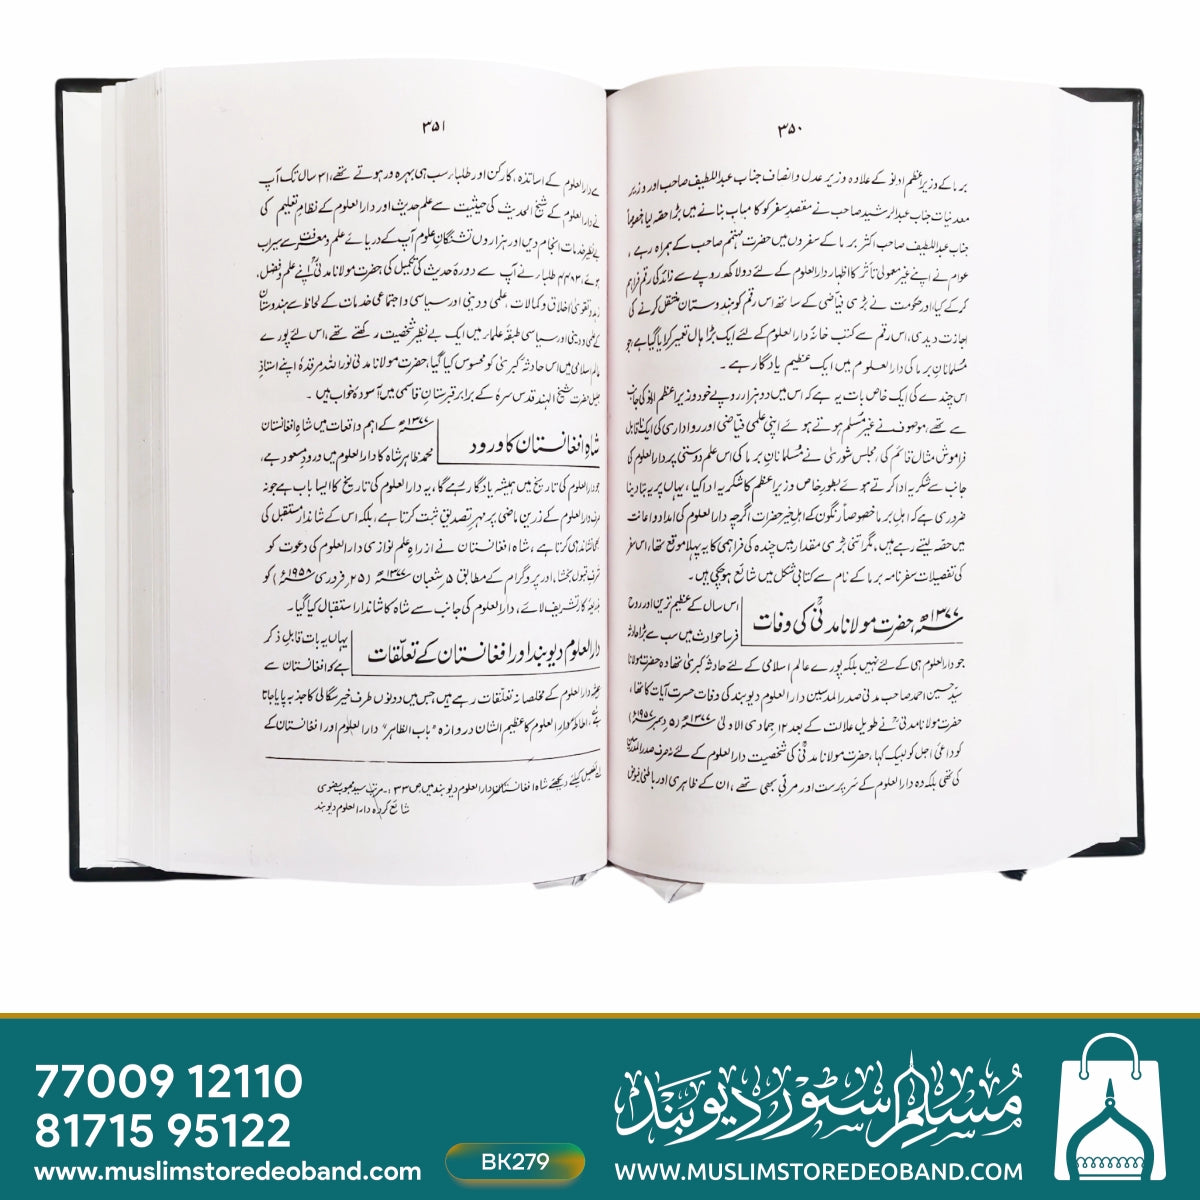 ۳۵۰
برما کے وزیر اعظم اونو کے علاوہ وزیر عدل وانصاف جناب عبداللطیف صاحب اور وزیر
معدنیات جناب عبدالرشید صاحب نے مقصدِ سفر کو کامیاب بنانے میں بڑا حصہ لیا خصوصاً
جناب عبداللطیف صاحب اکثر برما کے سفروں میں حضرت مہتمم صاحب کے ہمراہ رہے ،
عوام نے اپنے غیر معمولی تأثر کا اظہار دارالعلوم کے لئے دو لاکھ روپے سے زائد کی رقم فراہم
کر کے کیا، اور حکومت نے بڑی فیاضی کے ساتھ اس رقم کو ہندوستان منتقل کرنے کی
اجازت دیدی، اس رقم سے کتب خانۂ دارالعلوم کے لئے ایک بڑا ہال تعمیر کرایا گیا ہے، جو
مسلمانانِ برما کی دارالعلوم میں ایک عظیم یادگار ہے ۔
اس چندے کی ایک خاص بات یہ ہے کہ اس میں دو ہزار روپے خود وزیر اعظم اونو کی جانب
سے تھے، موصوف نے غیر مسلم ہوتے ہوئے اپنی علمی فیاضی اور رواداری کی ایک ناقابل
فراموش مثال قائم کی، مجلس شوریٰ نے مسلمانانِ برما کی اس علم دوستی پر دارالعلوم کی
جانب سے شکریہ ادا کرتے ہوئے بطورِ خاص وزیر اعظم کا شکریہ ادا کیا ، یہاں پر یہ بتا دینا
ضروری ہے کہ اہلِ برما خصوصاً رنگون کے اہلِ خیر حضرات اگرچہ دارالعلوم کی امداد و اعانت
میں حصہ لیتے رہے ہیں، مگر اتنی بڑی مقدار میں چندہ کی فراہمی کا یہ پہلا موقع تھا، اس سفر
کی تفصیلات سفرنامہ برما کے نام سے کتابی شکل میں شائع ہو چکی ہیں ۔
۱۳۷۷ھ، حضرت مولانا مدنیؒ کی وفات
اس سال کے عظیم ترین اور روح
فرسا حوادث میں سب سے بڑا حادثہ
جو دارالعلوم ہی کے لئے نہیں بلکہ پورے عالم اسلامی کے لئے حادثۂ کبریٰ تھا وہ حضرت مولانا
سید حسین احمد صاحب مدنی صدر المدرسین دارالعلوم دیوبند کی وفات حسرت آیات کا تھا،
حضرت مولانا مدنیؒ نے طویل علالت کے بعد ۱۲ جمادی الاولیٰ ۱۳۷۷ھ (۵ دسمبر ۱۹۵۷ء)
کو داعیٔ اجل کو لبیک کہا، حضرت مولانا مدنیؒ کی شخصیت دارالعلوم کے لئے نہ صرف صدر المدرسین
کی تھی بلکہ وہ دارالعلوم کے سرپرست اور مربی بھی تھے ، ان کے ظاہری اور باطنی فیوض
۳۵۱
دارالعلوم کے اساتذہ، کارکن اور طلبا ، سب ہی بہرہ ور ہوتے تھے، ۳۱ سال تک آپ
نے دارالعلوم کے شیخ الحدیث کی حیثیت سے علم حدیث اور دارالعلوم کے نظامِ تعلیم کی
خدمات انجام دیں اور ہزاروں تشنگانِ علوم آپ کے دریائے علم و معرفت سے سیراب
ہوئے، ۴۴۸۳ طلبا ر نے آپ سے دورۂ حدیث کی تکمیل کی حضرت مولانا مدنیؒ اپنے علم و فضل
زہد و تقویٰ اخلاق و کمالات، علمی و دینی اور سیاسی و اجتماعی خدمات کے لحاظ سے ہندوستان
کے علمی و دینی اور سیاسی طبقۂ علماء میں ایک بے نظیر شخصیت رکھتے تھے، اس لئے پورے
عالمِ اسلامی میں اس حادثۂ کبریٰ کو محسوس کیا گیا، حضرت مولانا مدنی نوراللہ مرقدہٗ اپنے استاذِ
جلیل حضرت شیخ الہند قدس سرہٗ کے برابر قبرستانِ قاسمی میں آسودۂ خواب ہیں ۔
شاہِ افغانستان کا ورود
۱۳۷۷ھ کے اہم واقعات میں شاہِ افغانستان
محمد ظاہر شاہ کا دارالعلوم میں ورودِ مسعود ہے،
جو دارالعلوم کی تاریخ میں ہمیشہ یادگار رہے گا، یہ دارالعلوم کی تاریخ کا ایسا باب ہے جو نہ
صرف دارالعلوم کے زرین ماضی پر مہرِ تصدیق ثبت کرتا ہے، بلکہ اس کے شاندار مستقبل کی
بھی نشاندہی کرتا ہے ، شاہ افغانستان نے از راہِ علم نوازی دارالعلوم کی دعوت کو
شرفِ قبول بخشا، اور پروگرام کے مطابق ۵ شعبان ۱۳۷۷ھ (۲۵ فروری ۱۹۵۸ء) کو
بذریعہ کار تشریف لائے، دارالعلوم کی جانب سے شاہ کا شاندار استقبال کیا گیا۔
دارالعلوم دیوبند اور افغانستان کے تعلقات
یہاں یہ بات قابلِ ذکر
ہے کہ افغانستان سے
دارالعلوم کے مخلصانہ تعلقات رہے ہیں، جس میں دونوں طرف خیر سگالی کا جذبہ پایا جاتا
ہے، احاطۂ دارالعلوم کا عظیم الشان دروازہ "باب الظاہر" دارالعلوم اور افغانستان کے
تفصیل کیلئے دیکھئے شاہ افغانستان دارالعلوم دیوبند میں ص ۱۳۳، مرتبہ سید محبوب رضوی
شائع کردہ دارالعلوم دیوبند
77009 12110
81715 95122
www.muslimstoredeoband.com
BK279
مسلم سٹور دیوبند
WWW.MUSLIMSTOREDEOBAND.COM